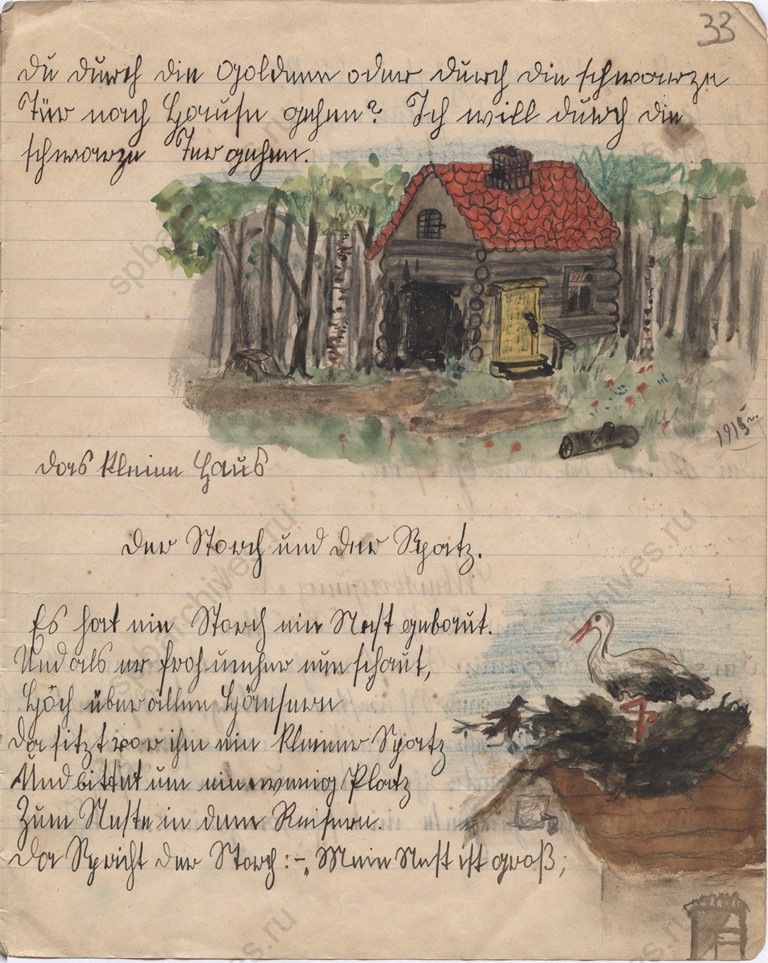 33
du durch die Goldene oder durch die schwarze
Tür nach Hause gehen? Ich will durch die
schwarze Tur gehen.
1915 г.
das kleine Haus
Der Storch und der Spatz.
Es hat ein Storch ein Nest gebaut.
Und als er froh umher nun schaut,
Hoch über allen Häusern
Da sitzt vor ihm ein kleiner Spatz
Und bittet um ein wenig Platz
Zum Neste in dem Reisern.
Da Spricht der Storch:-„Mein Nest ist groß;
spbarchives.ru